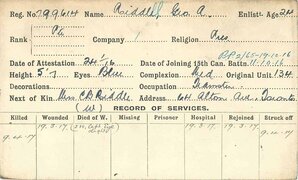 Reg. No. 799614 Name Riddle, Geo. A. Enlistt. Age 24
Rank Pte Company 1 Religion Pres
Date of Attestation Date of Joining 15th Can. Battn.
Height 5.7 Eyes Blue Complexion Med Original Unit 134
Decorations Occupation Teamster
Next of Kin Mrs. C.B. Riddle Address 64 Alton Ave Toronto
RECORD OF SERVICES.
Killed Wounded Died of W. Missing Prisoner Hospital Rejoined Struck off
9.4.17 19.3.17 19.3.17 9.4.17